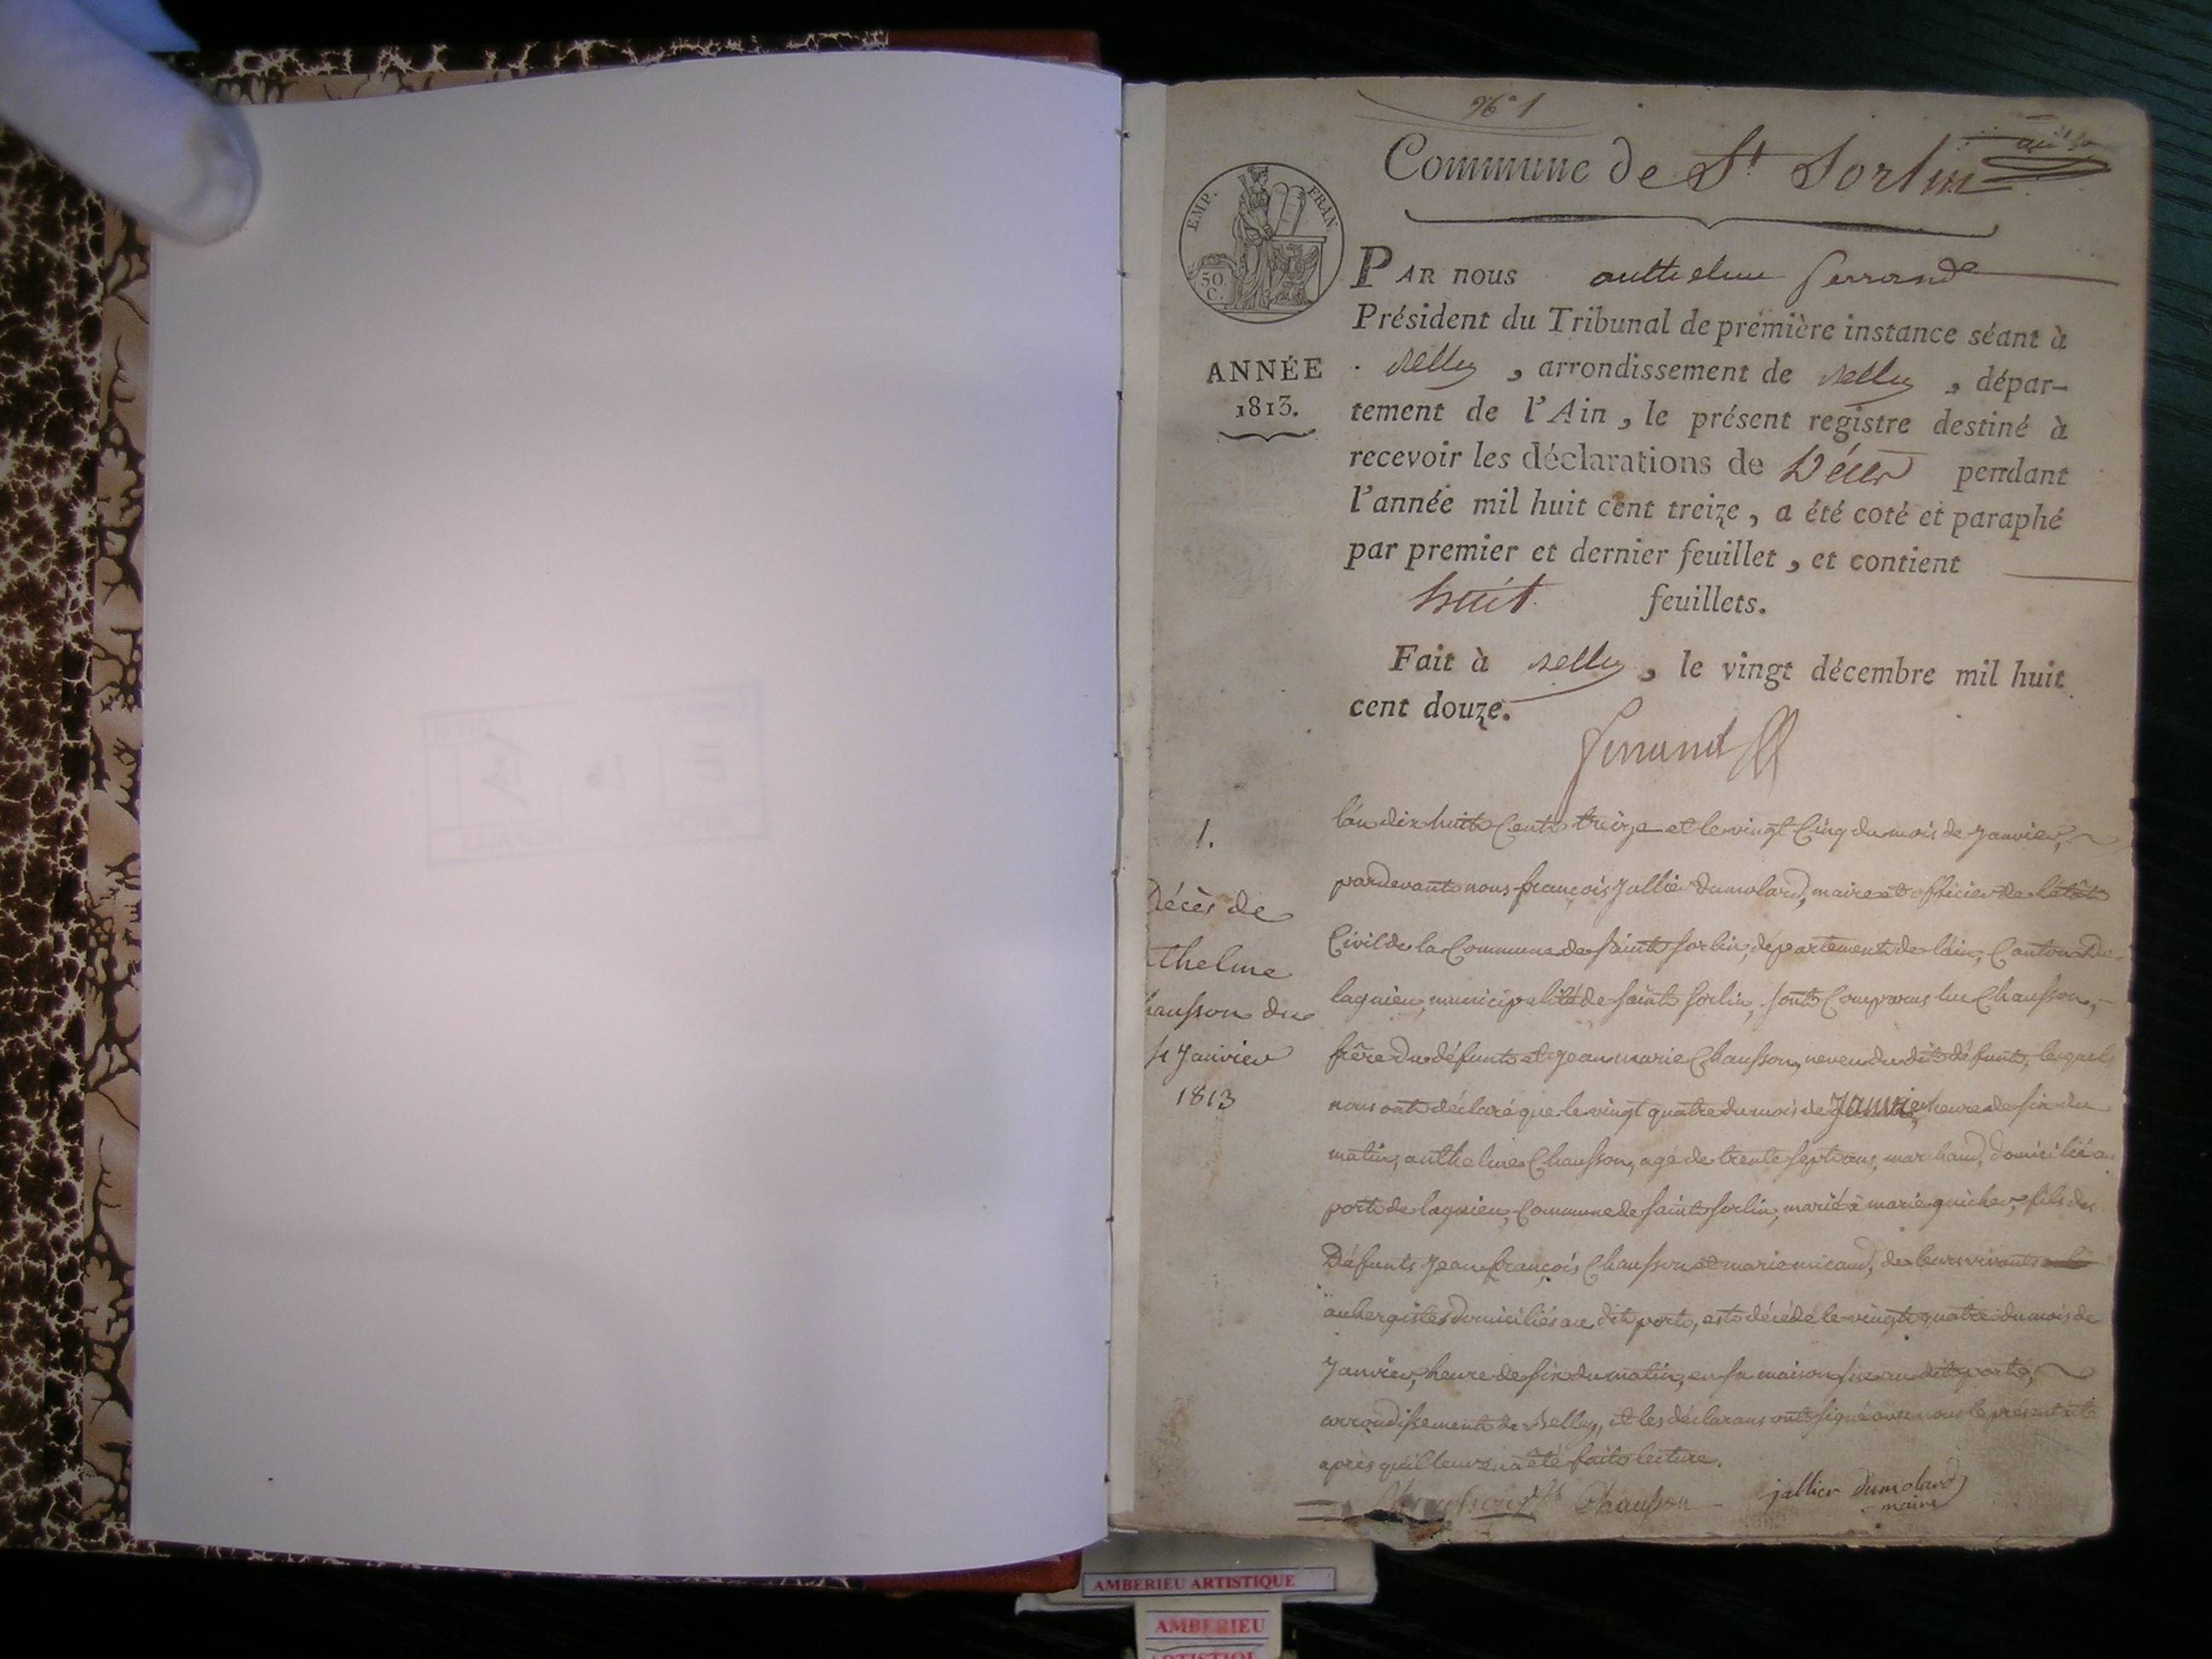 N° 1
Commune de St Sorlin
EMP. FRAN
50 C.
PAR nous anthelme ferrand
Président du Tribunal de première instance séant à
Belley, arrondissement de Belley, dépar-
ANNÉE
1813.
tement de l'Ain, le présent registre destiné à
recevoir les déclarations de Décès pendant
l'année mil huit cent treize, a été coté et paraphé
par premier et dernier feuillet, et contient
huit feuillets.
Fait à Belley, le vingt décembre mil huit
cent douze.
ferrand
1.
Décès de
thelme
hausson du
Janvier
1813
l'an dix huit Cent treize et le vingt Cinq du mois de Janvier,
pardevant nous françois Jallier dumolard, maire et officier de l'état
Civil de la Commune de saint sorlin, département de l'ain, Canton de
lagnieu, municipalité de saint sorlin, sont Comparus luc Chausson,
frère du défunt et jean marie Chausson, neveu du dit défunt, lesquels
nous ont déclaré que le vingt quatre du mois de Janvier, heure de six du
matin, anthelme Chausson, agé de trente sept ans, marchand, domicilié au
port de lagnieu, Commune de saint sorlin, marié à marie guicher, fils des
Défunts Jean françois Chausson et marie micaud, de leurs vivants
aubergistes domiciliés au dit port, est décédé le vingt quatre du mois de
Janvier, heure de six du matin, en sa maison sise au dit port,
arrondissement de Belley, et les déclarans ont signé avec nous le présent acte
après qu'il leur en a été fait lecture.
Chausson
jallier dumolard
maire
AMBERIEU ARTISTIQUE
AMBERIEU
ARTISTIQUE